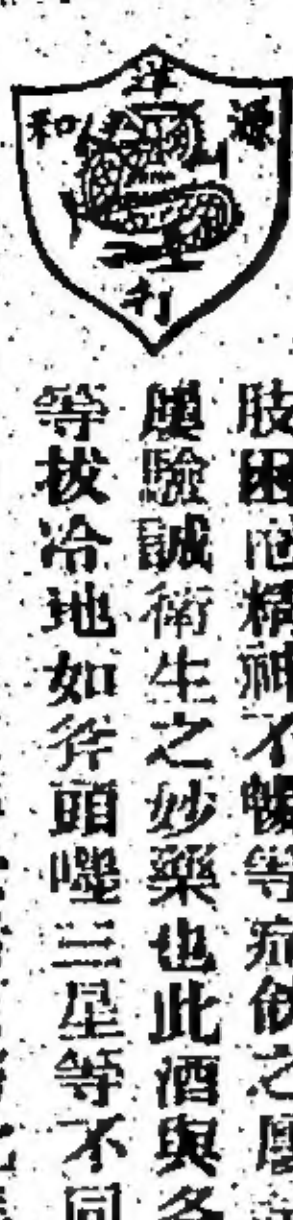 和
源
利
肢困怠精神不暢等症飲之屢
屢驗誠衛生之妙藥也此酒與各
等拔冷地如斧頭嘜三星等不同